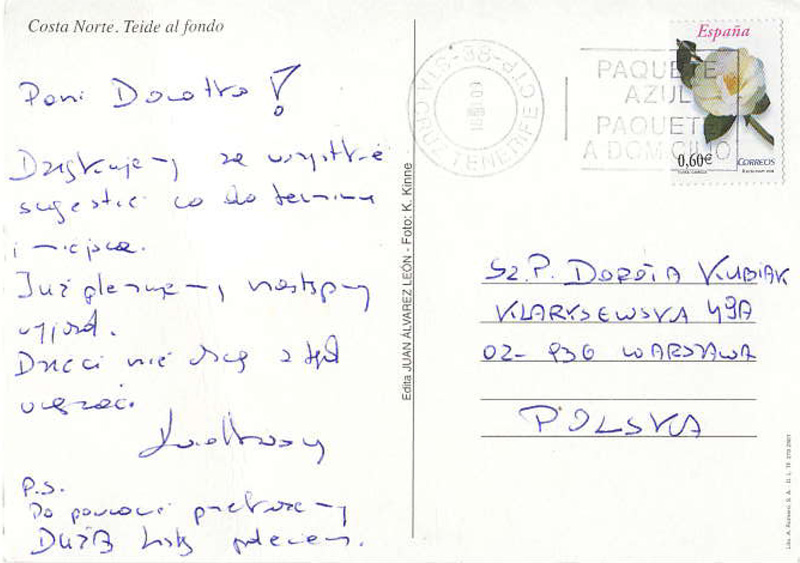 Costa Norte. Teide al fondo
Pani Dorotko!
Dziękujemy za wszystkie
sugestie co do terminu
i miejsca.
Już planujemy następny
wyjazd.
Dzieci nie chcą z tąd
wyjeżdżać
P.S.
Po powrocie przekażemy
DUŻĄ listę poleceń.
Edita JUAN ÁLVAREZ LEÓN - Foto: K. Kinne
STA CRUZ TENERIFE CTP-38
PAQUETE
AZUL
PAQUETE
A DOMICILIO
España
0,60€ CORREOS
SZ.P. DOROTA KUBIAK
KLARYSEWSKA 49A
02-936 WARSZAWA
POLSKA